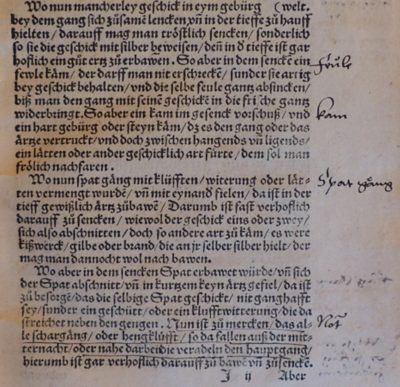 Wo nun mancherley geschick in eym gebürg (welt.
bey dem gang sich zůsame lencken/vñ in der tieffe zů hauff
hielten/ darauff mag man tröstlich sencken/ sonderlich
so sie die geschick mit silber beweisen/ deñ in d tieffe ist gar
hoflich ein gůt ertz zů erbawen. So aber in dem sencke ein
fewle käm/ der darff man nit erschrecke/ sunder sie artig
bey geschick behalten/ vnd die selbe feule gantz absincken/
biß man den gang mit seine geschicke in die frische gantz
widerbringt. So aber ein kam im gesenck vorschuß/ vnd
ein hart gebürg oder steyn käm/ dz es den gang oder das
ärtze vertruckt/ vnd doch zwischen hangends vñ ligends/
ein lätten oder ander geschicklich art fürte/ dem sol man
frölich nachfaren.
Wo nun spat gäng mit klüfften/ witerung oder lät-
ten vermengt wurde/ vñ mit eynand fielen/ da ist in der
tieff gewißlich ärtz zů bawe/ Darumb ist fast verhoflich
darauff zů sencken/ wiewol der geschick eins oder zwey/
sich also abschnitten/ doch so andere art zů käm/ es were
kißwerck/ gilbe oder brand/ die an jr selber silber hielt/ der
mag man dannocht wol nach bawen.
Wo aber in dem sencken Spat erbawet würde/ vñ sich
der Spat abschnitt/ vñ in kurtzem keyn ärtz gefiel/ da ist
zů besorge/ das die selbige Spat geschickt/ nit ganghafft
sey/ sunder ein geschütt/ oder ein klufftwitterung/ die da
streichet neben den gengen. Nun ist zů mercken/ das al-
le schargäng/ oder hengklüfft/ so da fallen auß der mit-
ternacht/ oder nahe darbei die veradeln den hauptgang/
hierumb ist gar verhoflich darauff zů bawe vñ zů sencke.
J ij Aber
föule
kam
Spat gäng
Not